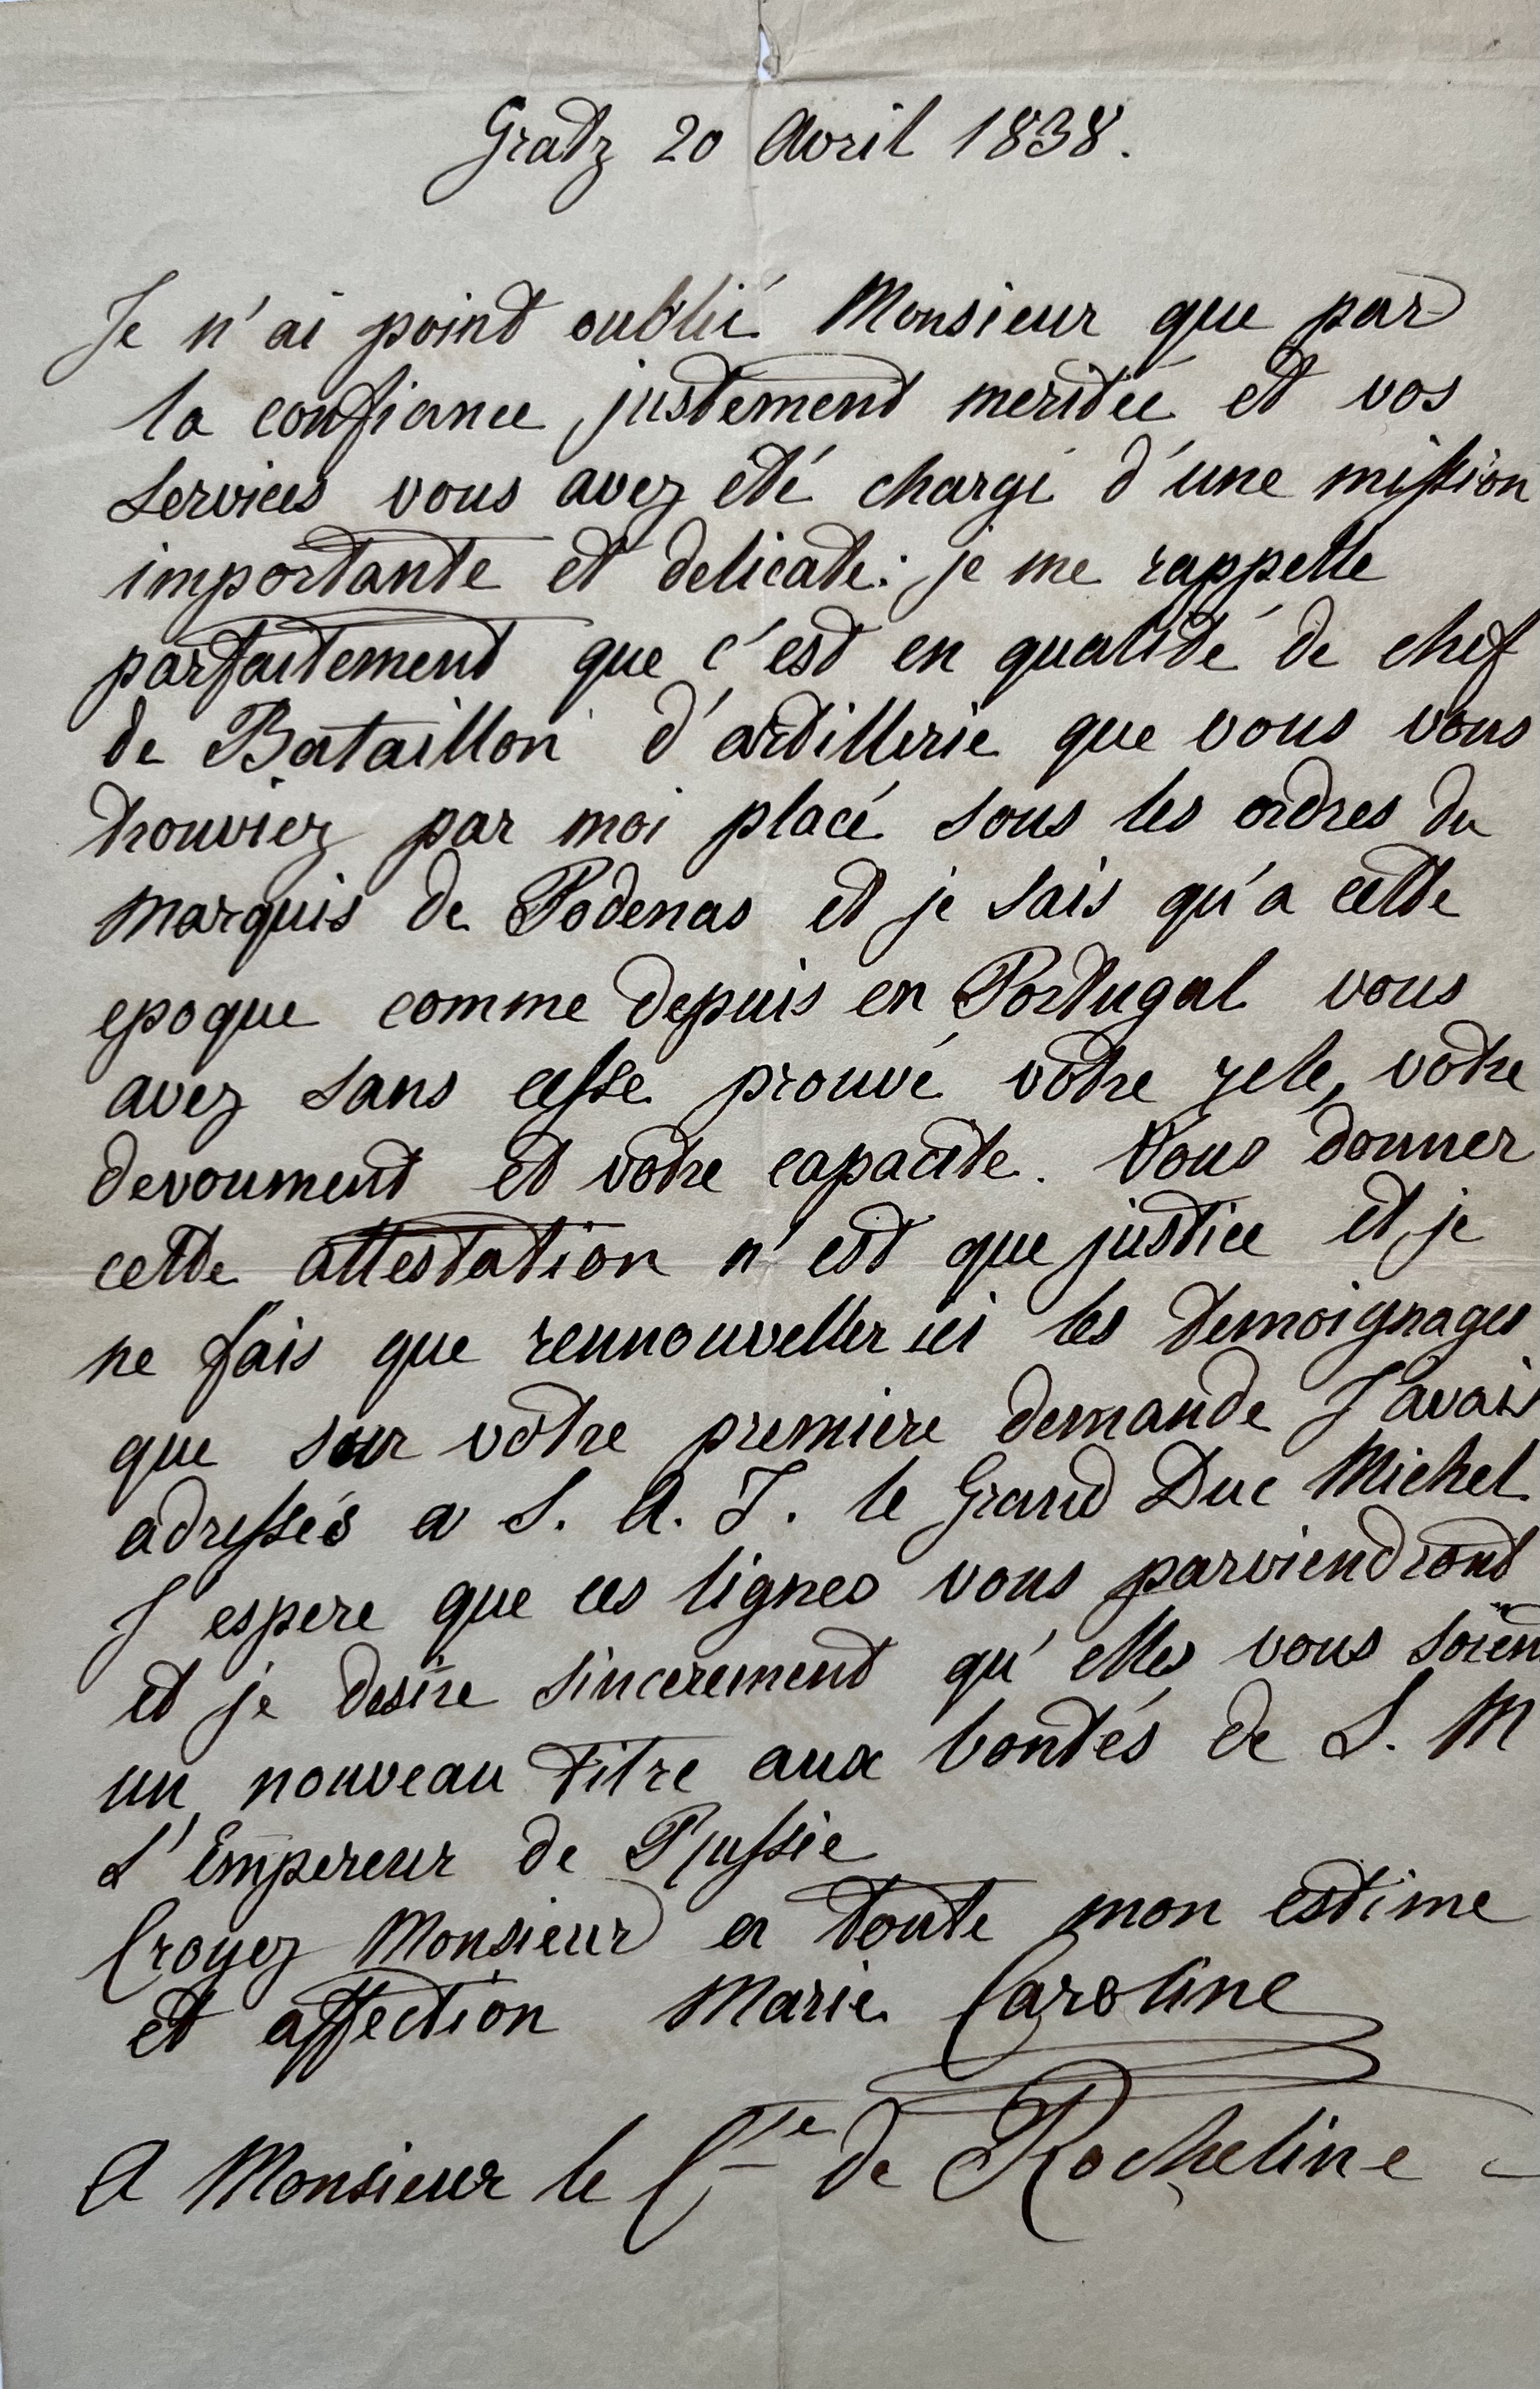 Gratz 20 Avril 1838.
Je n'ai point oublié Monsieur que par
la confiance justement meritée et vos
services vous avez été chargé d'une mission
importante et delicate: je me rappelle
parfaitement que c'est en qualité de chef
de Bataillon d'artillerie que vous vous
trouviez par moi placé sous les ordres du
Marquis de Podenas et je sais qu'a cette
epoque comme depuis en Portugal vous
avez sans cesse prouvé votre zele, votre
devoument et votre capacite. Vous donner
cette attestation n'est que justice et je
ne fais que rennouveller ici les temoignages
que sur votre premiere demande J'avais
adressés a S. A. I. le Grand Duc Michel.
J'espere que ces lignes vous parviendront
et je desire sincerement qu'elles vous soient
un nouveau titre aux bontés de S. M
L'Empereur de Russie
Croyez Monsieur a toute mon estime
et affection Marie Caroline
A Monsieur le Cte de Rocheline